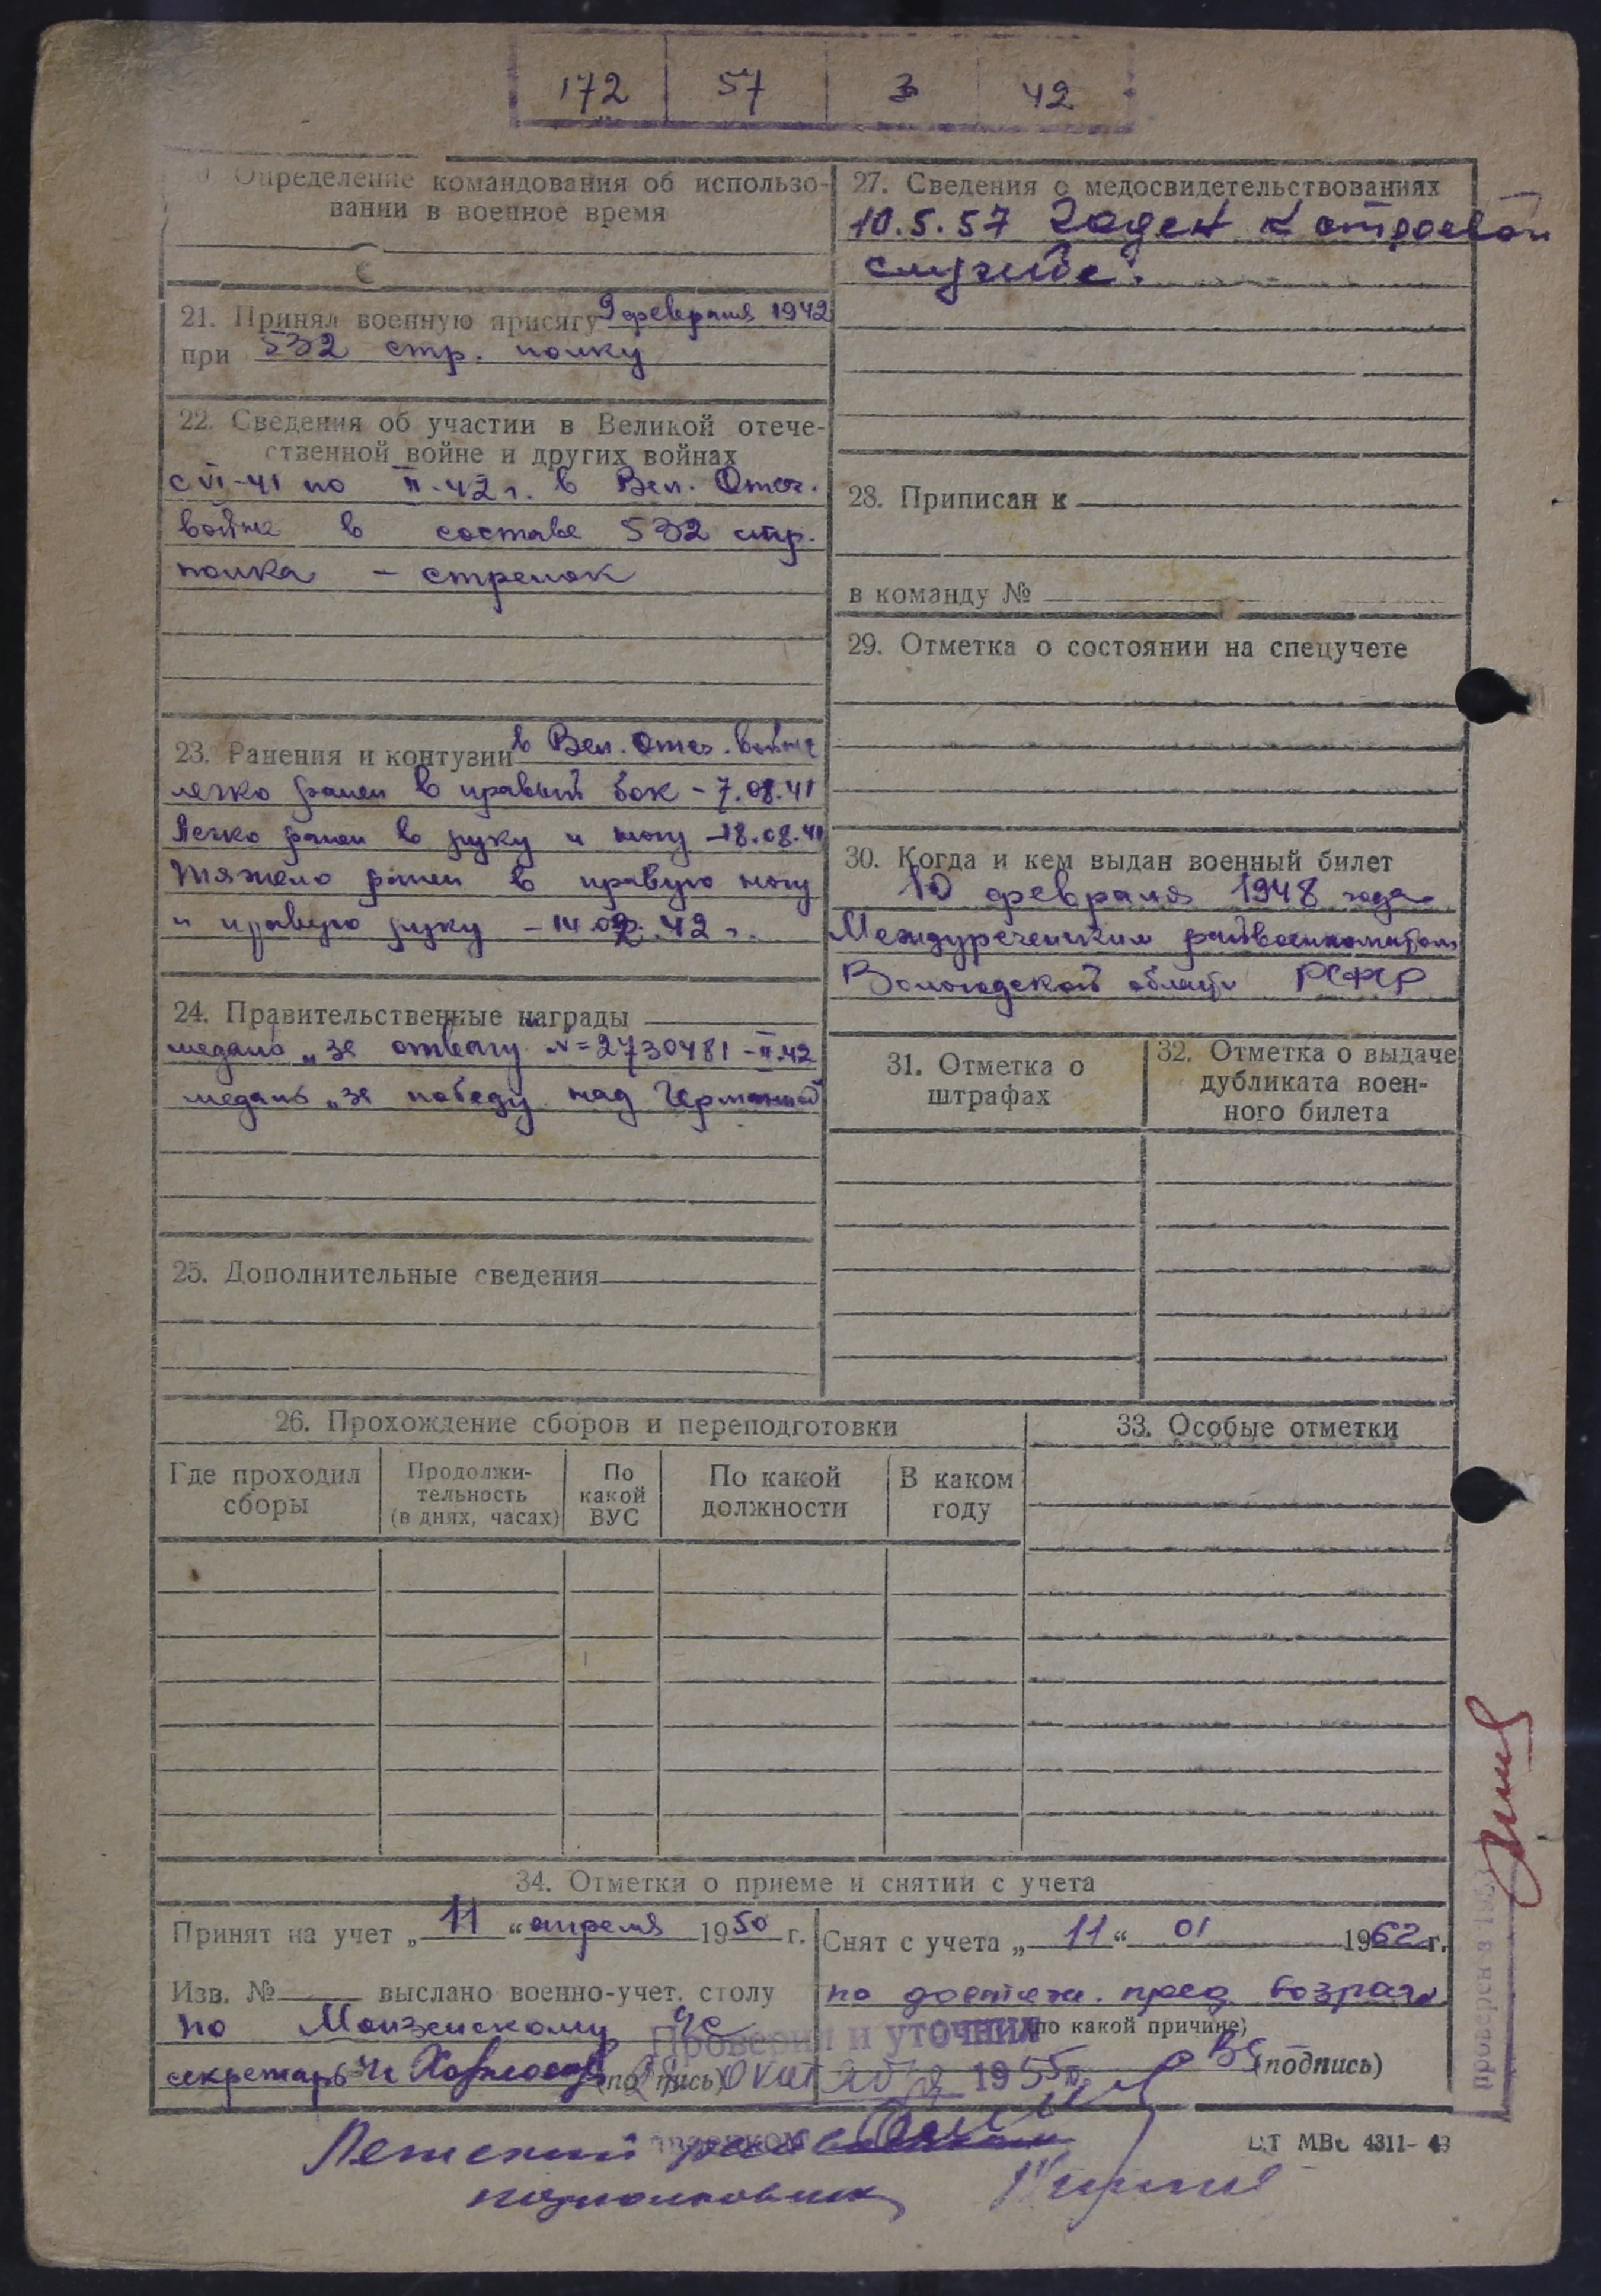 172 57 3 42
Определение командования об использо-
вании в военное время
21. Принял военную присягу 9 февраля 1942
при 532 стр. полку
22. Сведения об участии в Великой отече-
ственной войне и других войнах
с VI-41 по II-42 г. в Вел. Отеч.
войне в составе 532 стр.
полка - стрелок
23. Ранения и контузии в Вел. Отеч. войне
легко ранен в правый бок - 7.08.41
Легко ранен в руку и ногу - 18.08.41
тяжело ранен в правую ногу
и правую руку - 14.02.42 г.
24. Правительственные награды
медаль „за отвагу" N=2730481 - II.42
медаль „за победу над Германией
25. Дополнительные сведения
27. Сведения о медосвидетельствованиях
10.5.57 Годен к строевой
службе.
28. Приписан к
в команду №
29. Отметка о состоянии на спецучете
30. Когда и кем выдан военный билет
10 февраля 1948 года
Междуреченским райвоенкоматом
Вологодской области РСФСР
31. Отметка о
штрафах
32. Отметка о выдаче
дубликата воен-
ного билета
26. Прохождение сборов и переподготовки
Где проходил
сборы
Продолжи-
тельность
(в днях, часах)
По
какой
ВУС
По какой
должности
В каком
году
33. Особые отметки
34. Отметки о приеме и снятии с учета
Принят на учет „ 11 “ апреля 1950 г.
Изв. № выслано военно-учет. столу
по Монзенскому
секретарь (подпись)
Снят с учета „ 11 “ 01 1962 г.
по достиж. пред. возраста
(по какой причине)
(подпись)
Проверил и уточнил
1955 г.
подполковник
проверен в 195